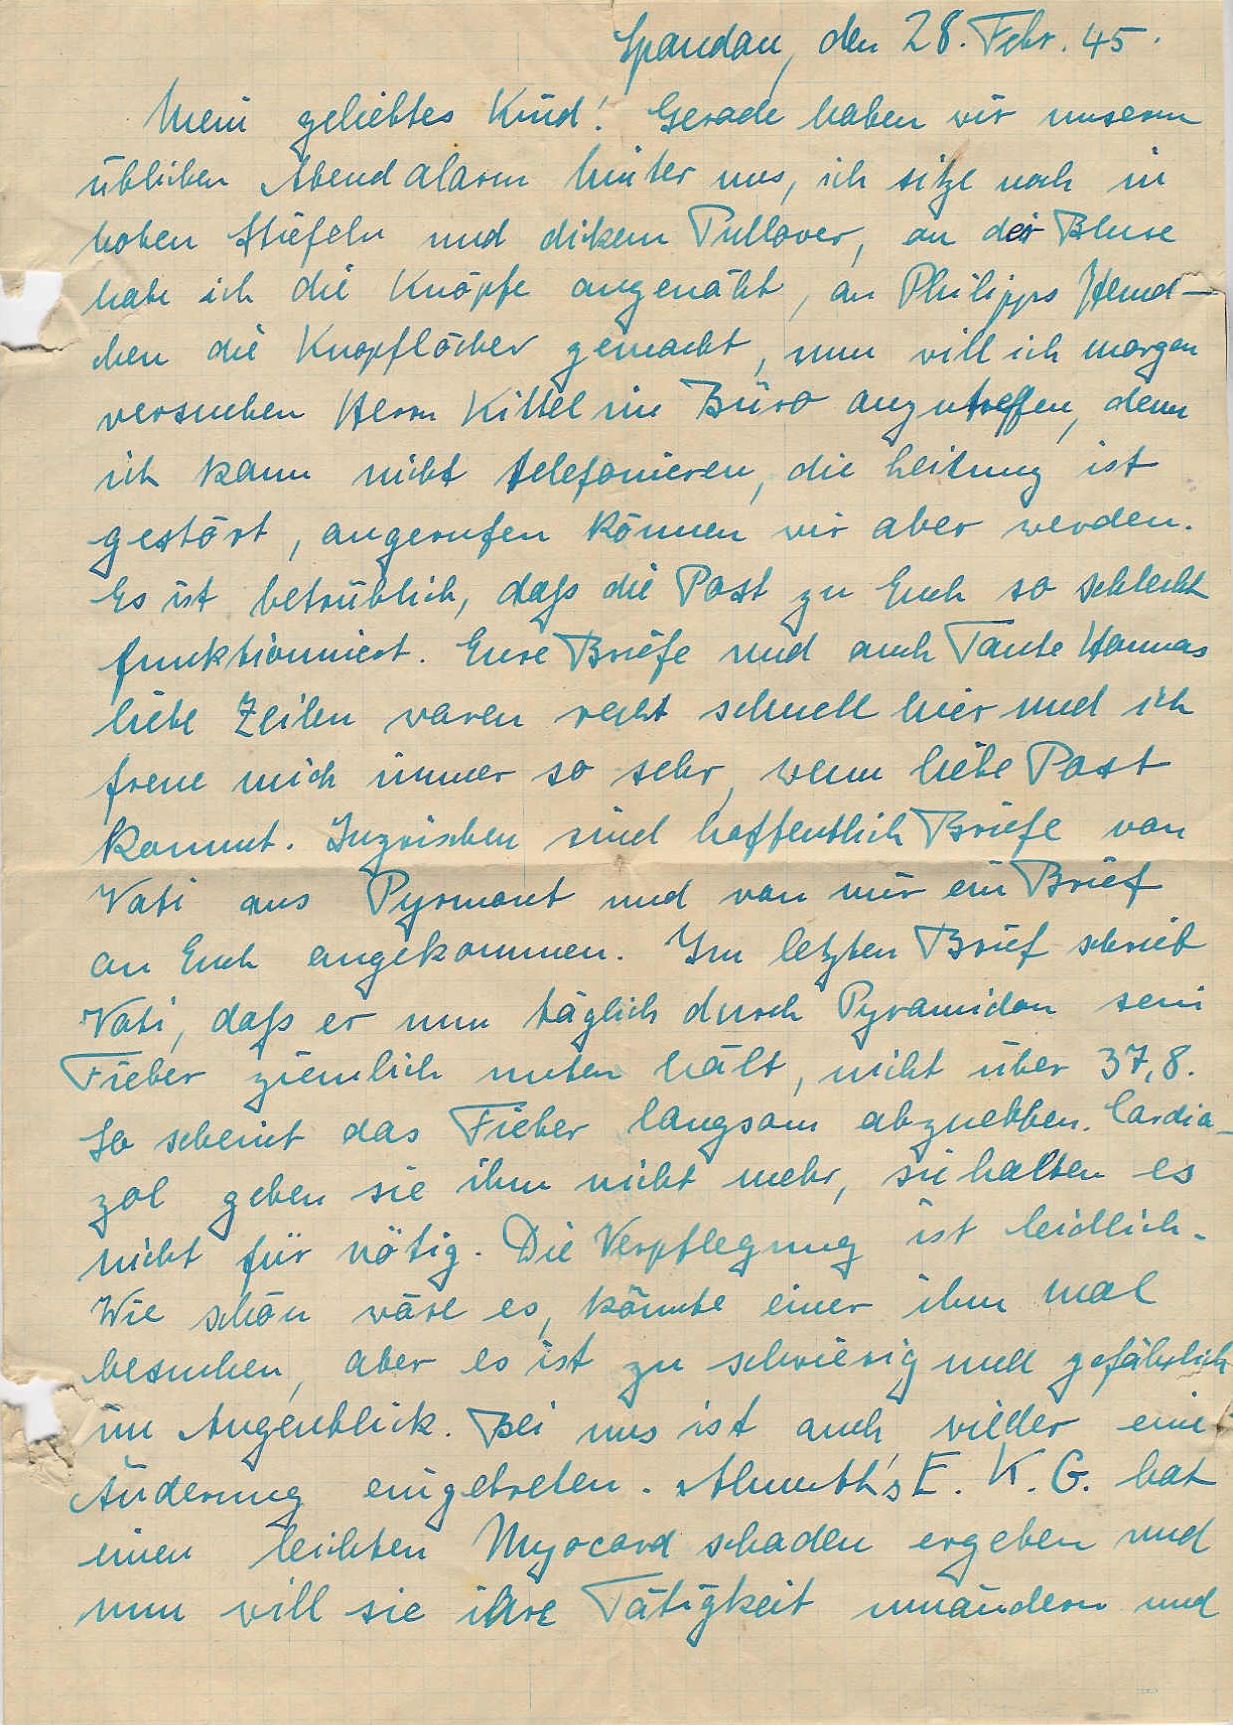 Spandau, den 28. Febr. 45.
Mein geliebtes Kind! Gerade haben wir unseren
üblichen Abendalarm hinter uns, ich sitze noch in
hohen Stiefeln und dickem Pullover, an der Bluse
habe ich die Knöpfe angenäht, an Philipps Hemd-
chen die Knopflöcher gemacht, nun will ich morgen
versuchen Herrn Kittel im Büro anzutreffen, denn
ich kann nicht telefonieren, die Leitung ist
gestört, angerufen können wir aber werden.
Es ist betrüblich, daß die Post zu Euch so schlecht
funktionniert. Eure Briefe und auch Tante Hannas
liebe Zeilen waren recht schnell hier und ich
freue mich immer so sehr, wenn liebe Post
kommt. Inzwischen sind hoffentlich Briefe von
Vati aus Pyrmont und von mir ein Brief
an Euch angekommen. Im letzten Brief schrieb
Vati, daß er nun täglich durch Pyramidon sein
Fieber ziemlich unten hält, nicht über 37,8.
So scheint das Fieber langsam abzuebben. Cardia-
zol geben sie ihm nicht mehr, sie halten es
nicht für nötig. Die Verpflegung ist leidlich.
Wie schön wäre es, könnte einer ihm mal
besuchen, aber es ist zu schwierig und gefährlich
im Augenblick. Bei uns ist auch wieder eine
Änderung eingetreten. Almuth's E. K. G. hat
einen leichten Myocardschaden ergeben und
nun will sie ihre Tätigkeit umändern und